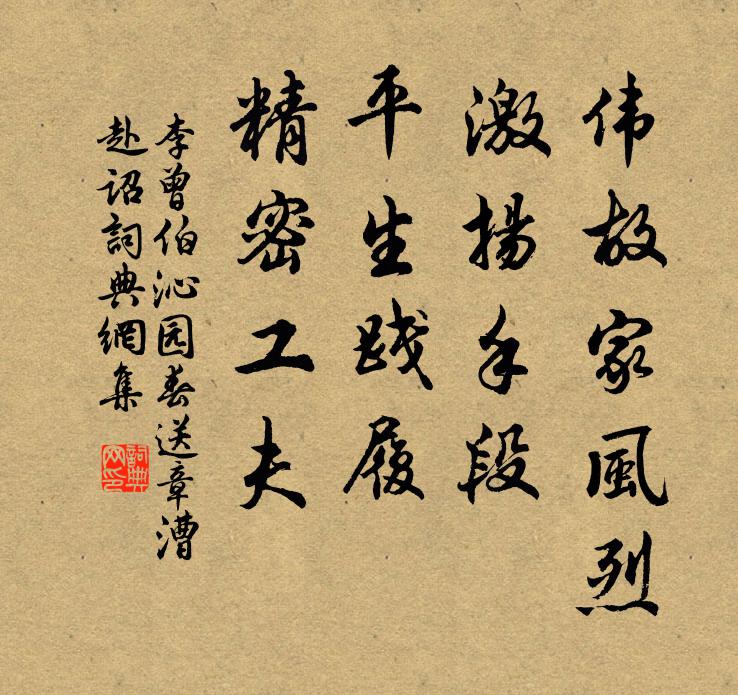 伟故家風烈
激揚手段
平生践履
精密工夫
李曾伯沁园春送章漕
赴诏詞典網集
詞典网印